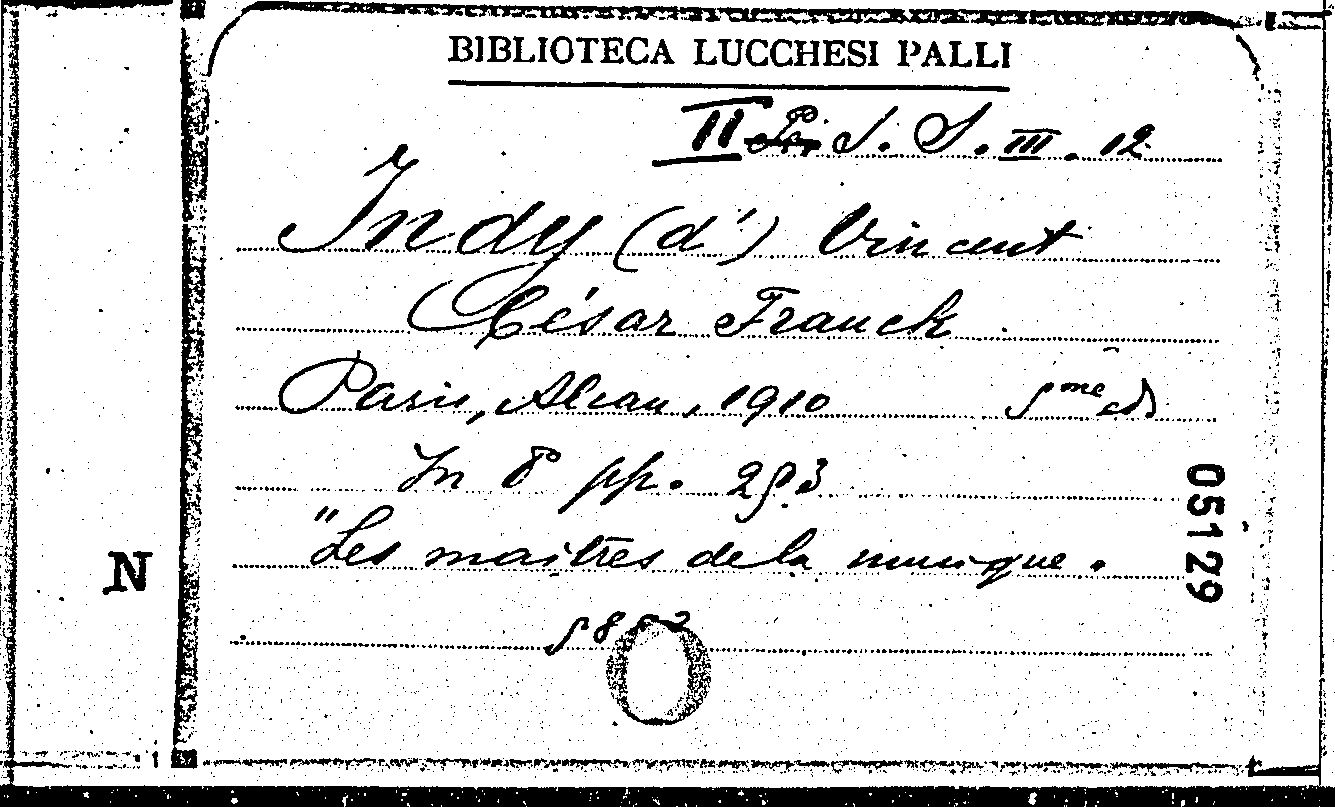 BIBLIOTECA LUCCHESI PALLI
II S. S. III. 12
Indy (d') Vincent
César Franck
Paris, Alcan, 1910 5me ed
In 8° pp. 253
"Les maîtres de la musique.
05129
N